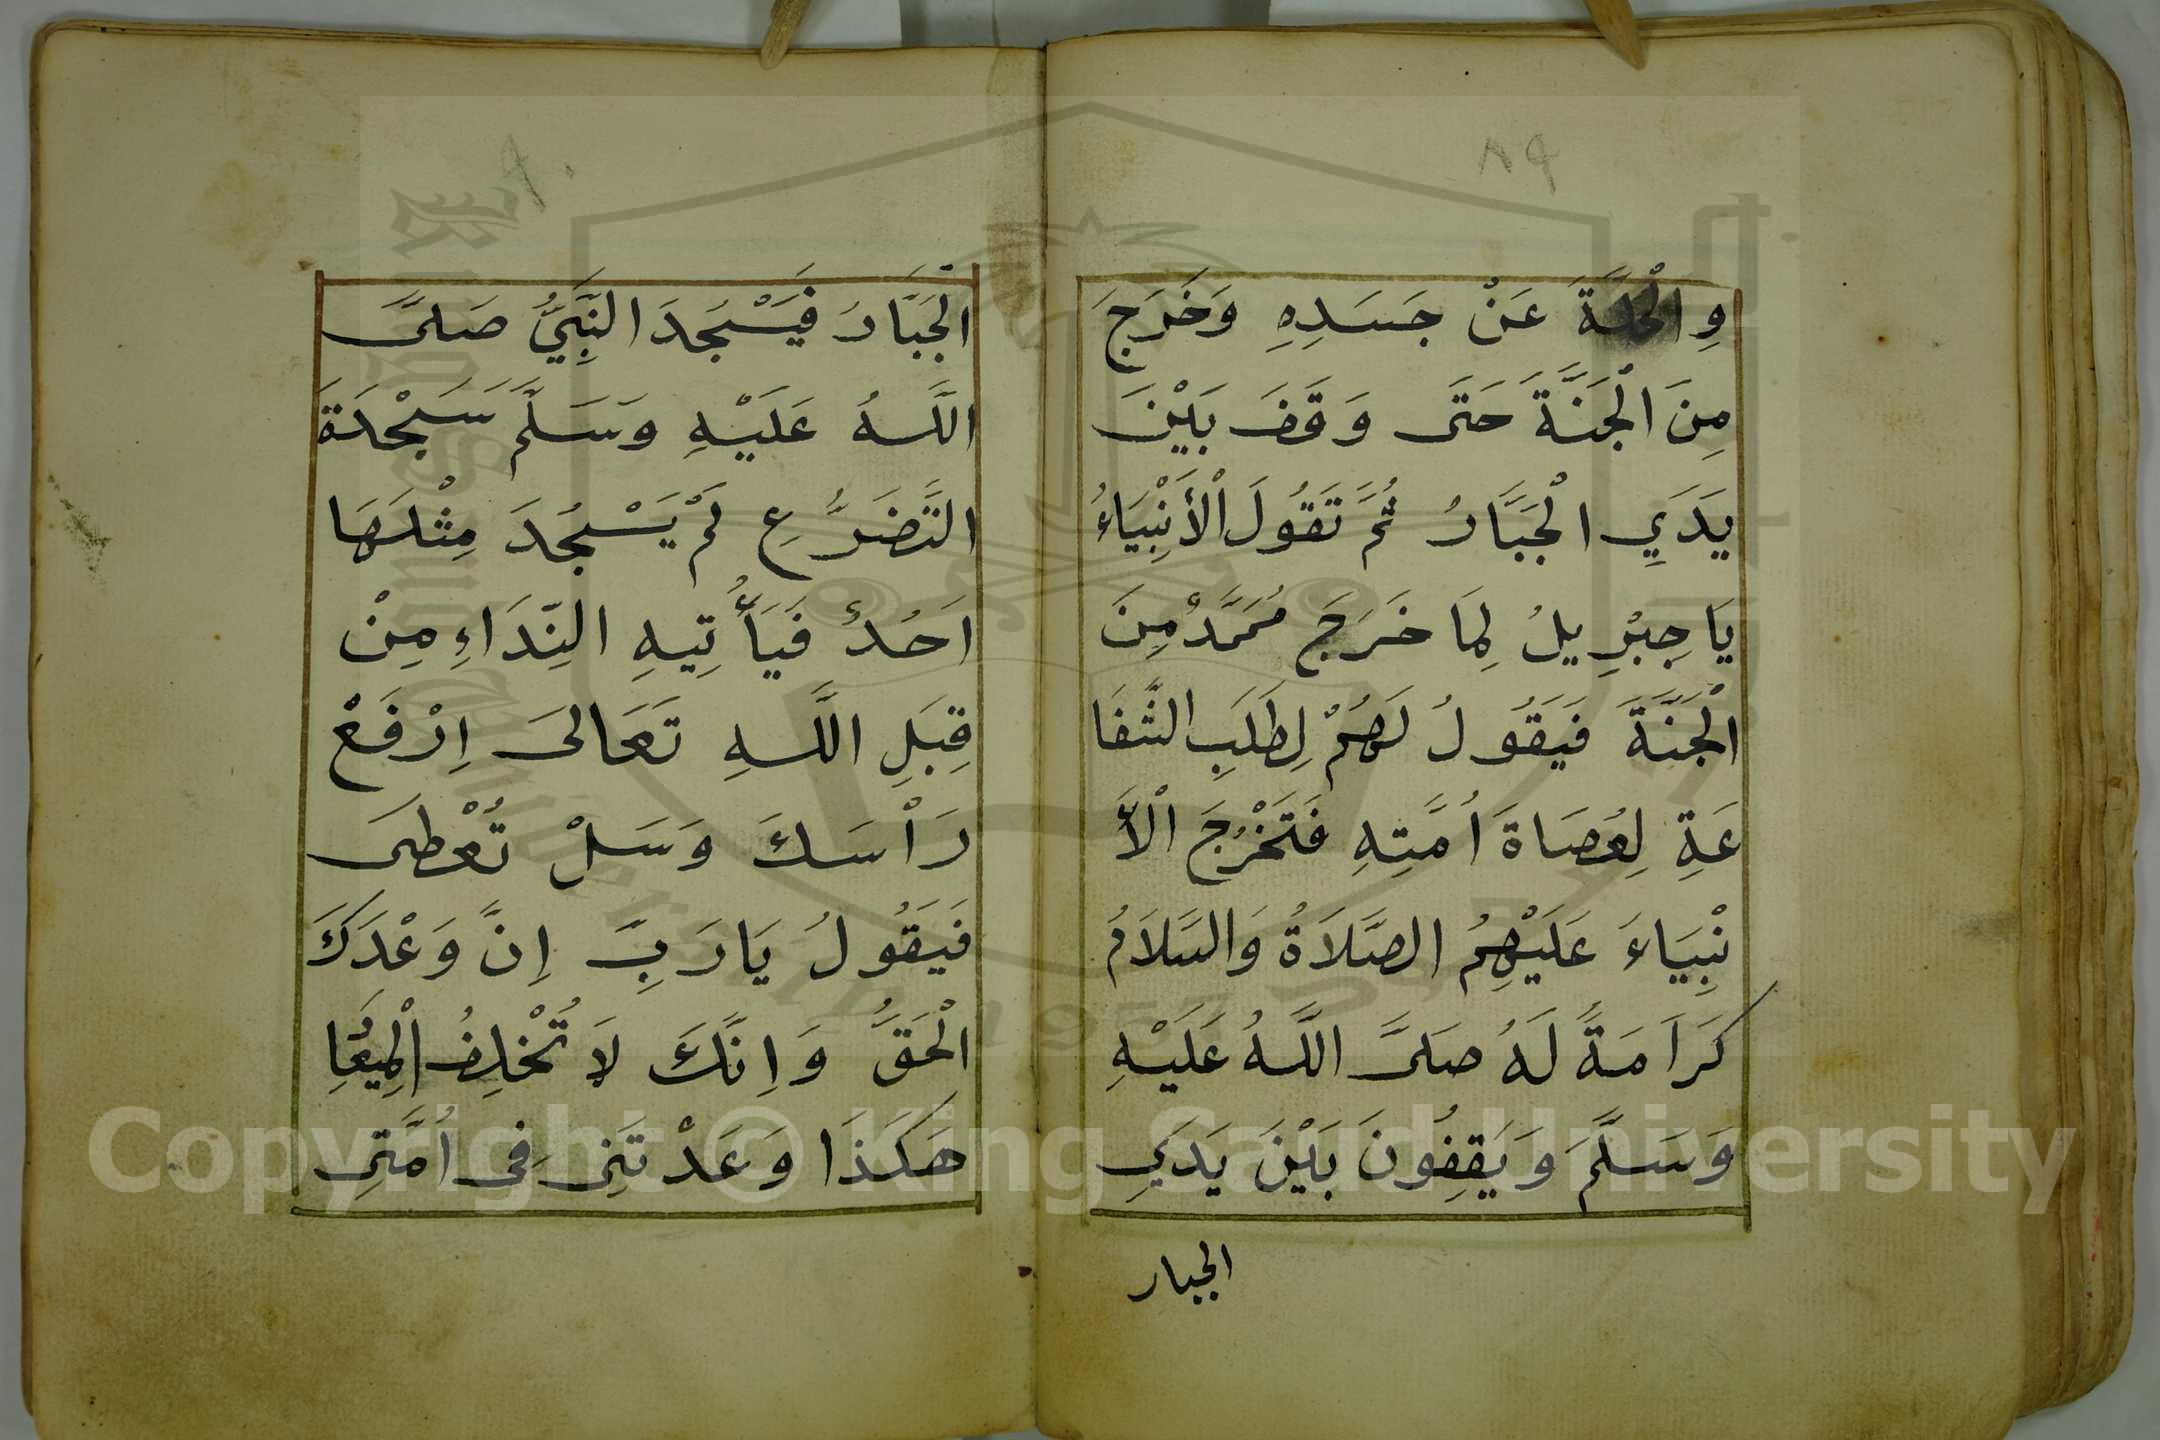 ٨٩
وِالْحُلَّةَ عَنْ جَسَدِهِ وَخَرَجَ
مِنَ الْجَنَّةَ حَتَى وَقَفَ بَيْنَ
يَدَيِ الْجَبَّارُ ثُمَّ تَقُولَ اْلأَنْبِيَاءُ
يَا جِبْرِيلُ لِمَا خَرَجَ مُحَمَّدْ مِنَ
الْجَنَّةَ فَيَقُولُ لَهُمْ لِطَلَبِ الشَّفَا
عَةِ لِعُصَاةَ اُمَّتِهِ فَتَخْرُجَ اْلأَ
نْبِيَاءَ عَلَيْهِمُ الصَّلَاةُ وَالسَّلَامُ
كَرَاَمَةً لَهُ صَلَىَّ اللَّهُ عَلَيْهِ
وَسَلَّمَ وَيَقِفُونَ بَيْنَ يَدَيِ
الجبار
٩٠
الْجَبَّارُ فَيَسْجُدَ النَّبِيُّ صَلَىَّ
اللَّهُ عَلَيْهِ وَسَلَّمَ سَجْدَةَ
التَّضَرُّعِ لَمْ يَسْجُدَ مِثْلَهَا
اَحُدُ فَيَأْتِيهِ النِّدَاءِ مِنْ
قِبَلِ اللَّهِ تَعَالىَ اِرْفَعْ
رَاْسَكَ وَسَلْ تُعْطىَ
فَيَقُولُ يَارَبِّ اِنَّ وَعْدَكَ
الْحَقُّ وَاِنَّكَ لَا تُخْلِفُ الْمِيعَا
هَكَذَا وَعَدْتَنِى فِى اُمَّتِى
Copyright © King Saud University